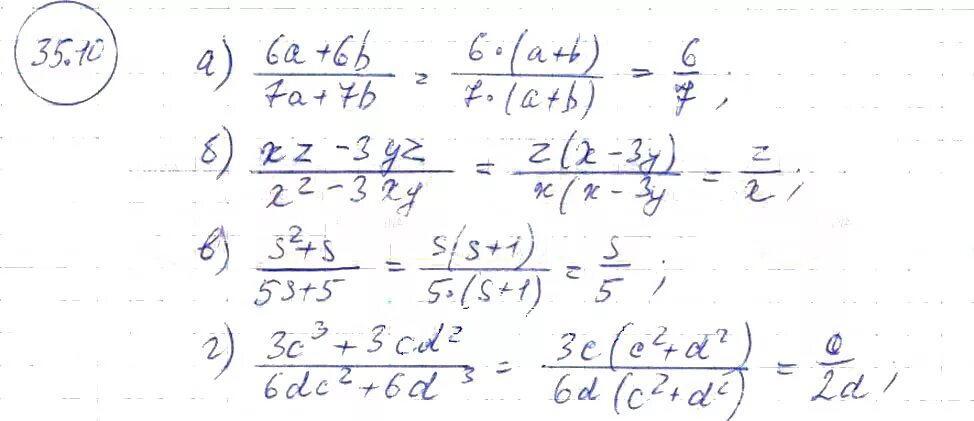 35.10
а) (6a+6b)/(7a+7b) = (6·(a+b))/(7·(a+b)) = 6/7;
б) (xz-3yz)/(x²-3xy) = (z(x-3y))/(x(x-3y) = z/x;
в) (s²+s)/(5s+5) = (s(s+1))/(5·(s+1)) = s/5;
г) (3c³+3cd²)/(6dc²+6d³) = (3c(c²+d²))/(6d(c²+d²)) = c/2d;